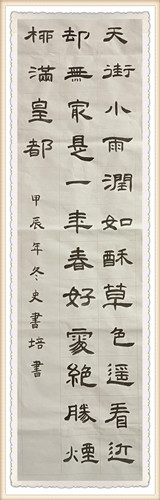 天街小雨潤如酥草色遙看近
却無最是一年春好處絕勝煙
柳滿皇都
甲辰年冬史書培書